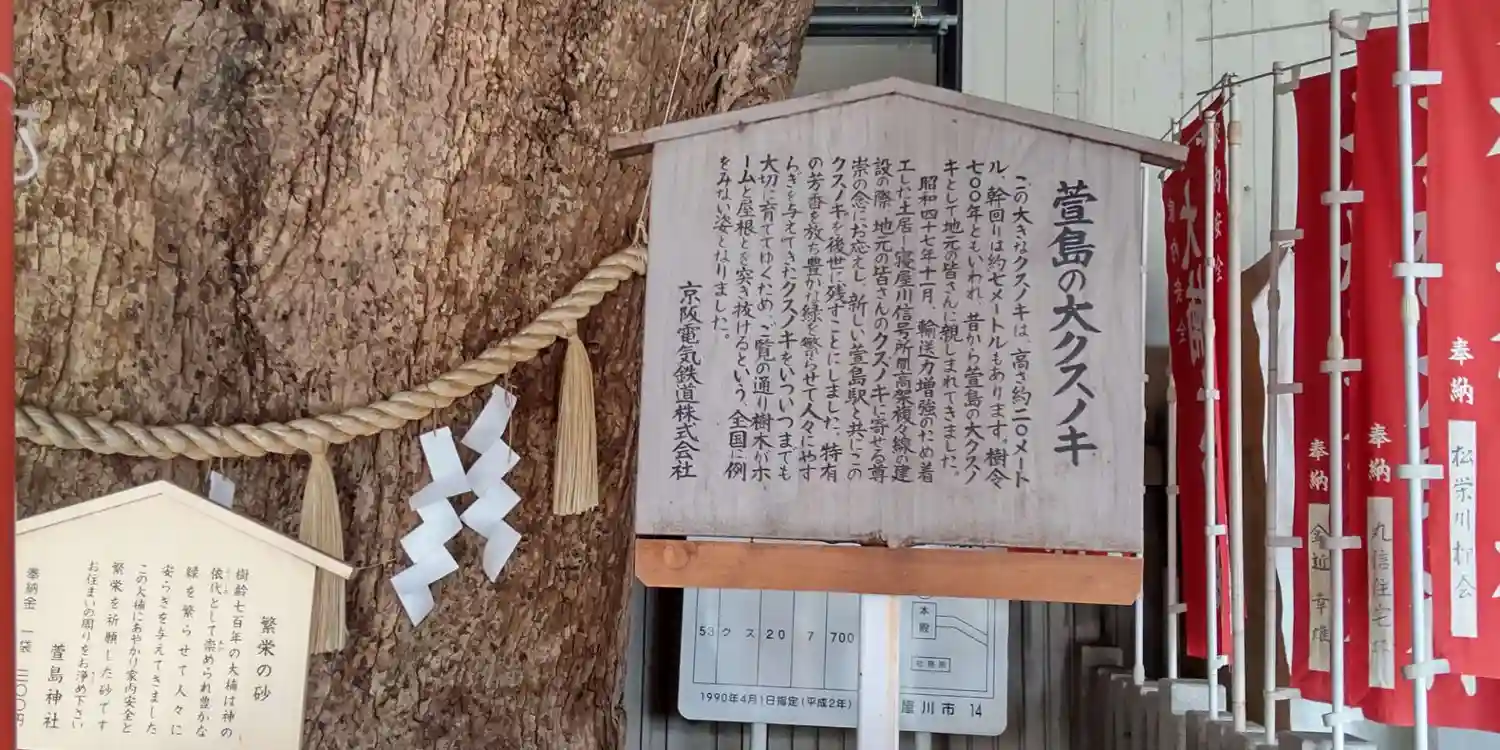 萱島の大クスノキ
この大きなクスノキは、高さ約二〇メート
ル、幹回りは約七メートルもあります。樹令
七〇〇年ともいわれ、昔から萱島の大クスノ
キとして地元の皆さんに親しまれてきました。
昭和四十七年十一月、輸送力増強のため着
工した土居―寝屋川信号所間高架複々線の建
設の際、地元の皆さんのクスノキに寄せる尊
崇の念にお応えし、新しい萱島駅と共にこの
クスノキを後世に残すことにしました。特有
の芳香を放ち豊かな緑を繁らせて人々にやす
らぎを与えてきたクスノキをいついつまでも
大切に育ててゆくため、ご覧の通り樹木がホ
ームと屋根とを突き抜けるという、全国に例
をみない姿となりました。
京阪電気鉄道株式会社
繁栄の砂
樹齢七百年の大楠は神の
依代として崇められ豊かな
緑を繁らせて人々に
安らぎを与えてきました
この大楠にあやかり家内安全と
繁栄を祈願した砂です
お住まいの周りをお浄め下さい
萱島神社
奉納金 一袋 三〇〇円
53 クス 20 7 700
1990年4月1日指定(平成2年)
本殿
屋川市 14
奉納
松栄川柳会
奉納
丸信住宅
奉納
幸雄